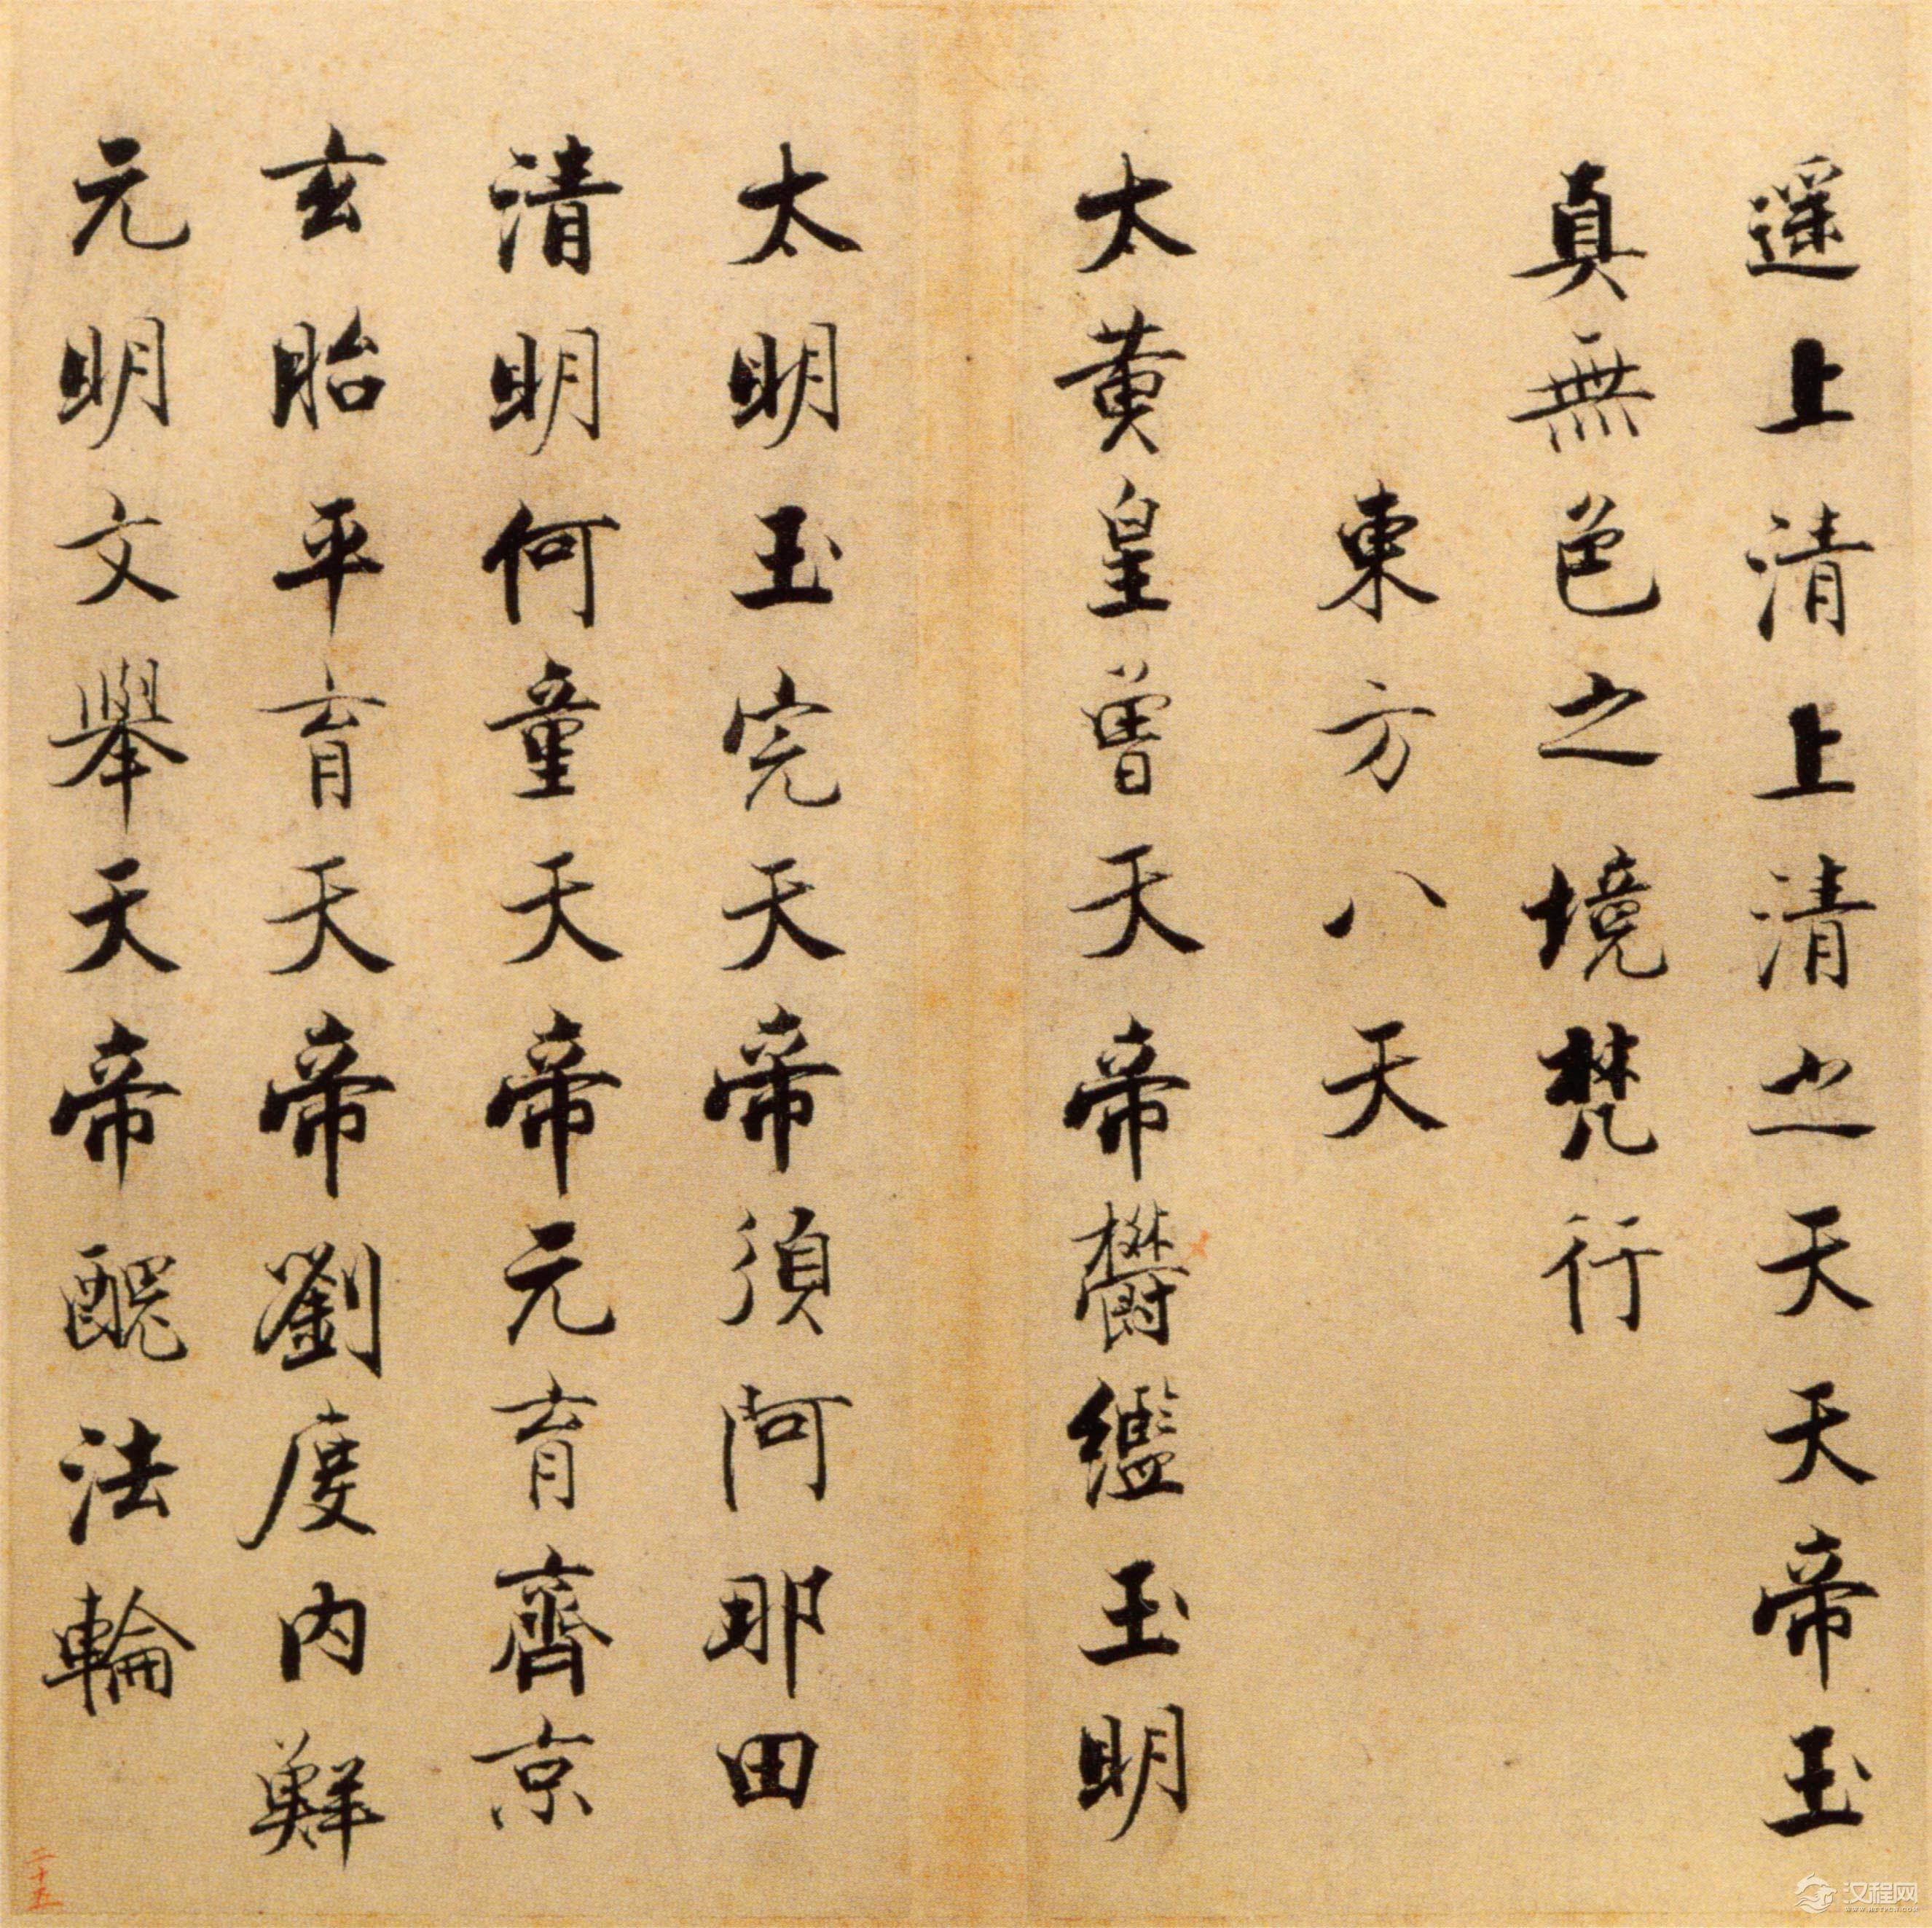 遥上清上上清之天天帝玉
真無色之境梵行
東方八天
太黄皇曾天帝欝繿玉明
太明玉完天帝須阿那田
清明何童天帝元育齊京
玄胎平育天帝劉度内鮮
元明文舉天帝醜法輪
二十五
汉程网